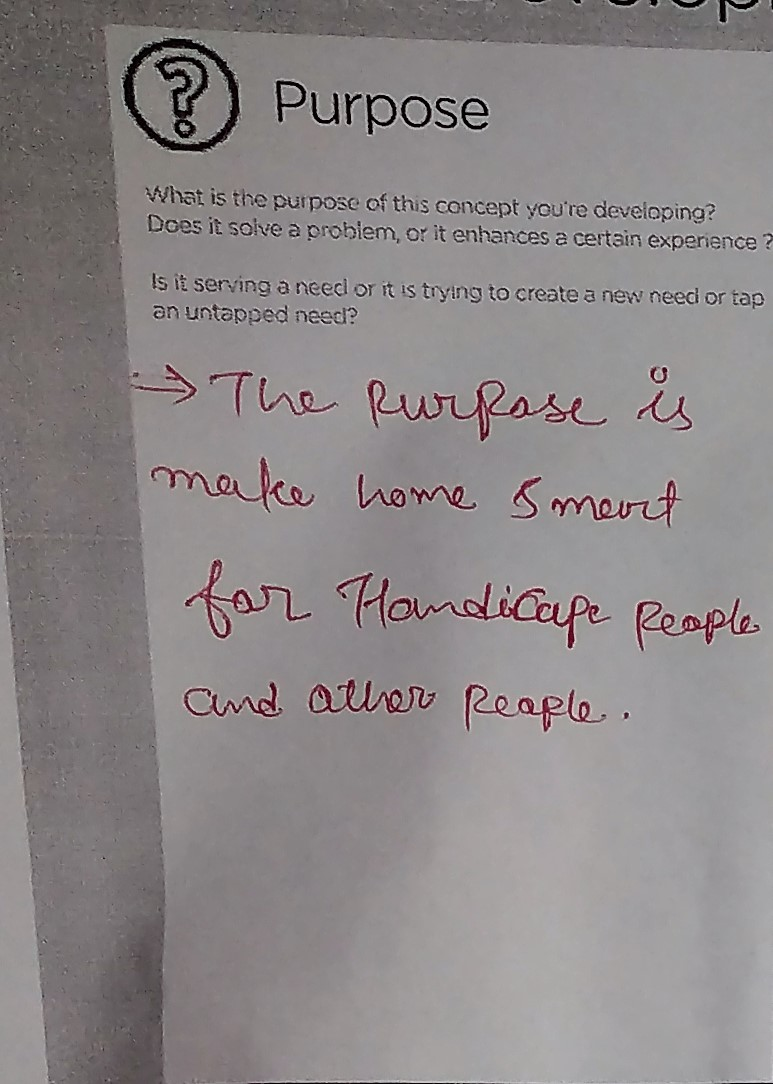 Purpose
What is the purpose of this concept you're developing?
Does it solve a problem, or it enhances a certain experience ?
Is it serving a need or it is trying to create a new need or tap
an untapped need?
→ The purpose is
make home smart
for Handicape people
and other people.